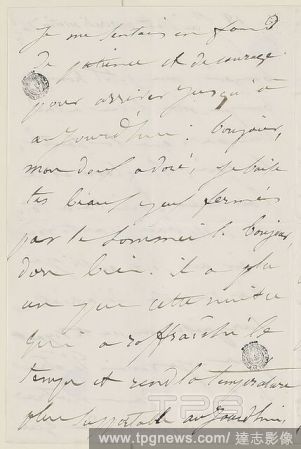 Je me sentais un fond
de patience et de courage
pour arriver jusqu'à
aujourd'hui. bonjour,
mon doux adoré, je baise
tes beaux yeux fermés
par le sommeil. bonjour,
dors bien. il a plu
un peu cette nuit ce
qui a raffraichi le
temps et rend la température
plus supportable aujourd'hui
TPG
www.tpgnews.com/ 達志影像